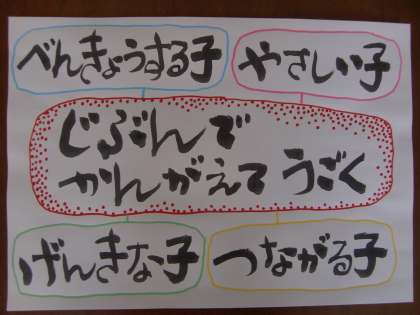 べんきょうする子
やさしい子
じぶんで
かんがえて うごく
げんきな子
つながる子